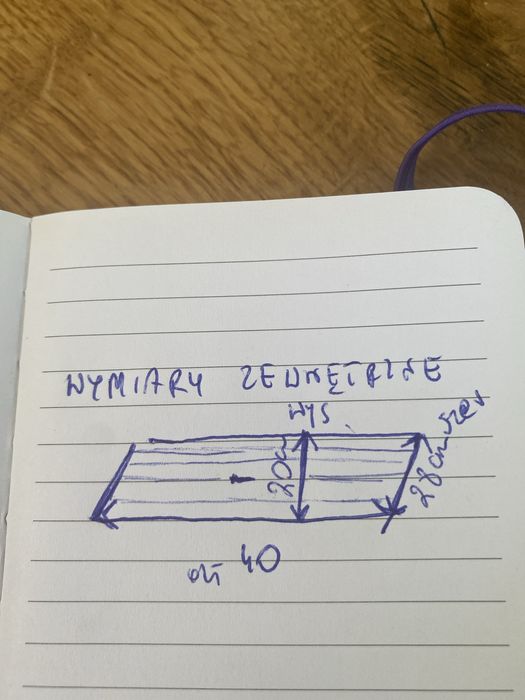 WYMIARY ZEWNĘTRZNE
WYS
20cm
28cm szer
dł 40